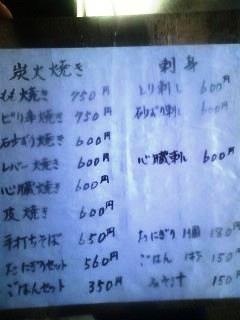 炭火焼き
もも焼き 750円
ピリ辛焼き 750円
砂ずり焼き 600円
レバー焼き 600円
心臓焼き 600円
皮焼き 600円
手打ちそば 650円
おにぎりセット 560円
ごはんセット 350円
刺身
とり刺し 600円
砂ずり刺し 600円
心臓刺し 600円
おにぎり 1個 180
ごはん 150
みそ汁 150